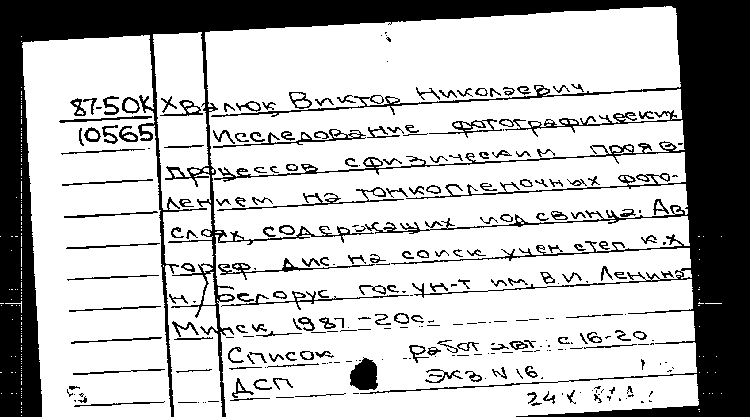 87-50К Хвалюк, Виктор Николаевич.
10565 Исследование фотографических
процессов с физическим прояв-
лением на тонкопленочных фото-
слоях, содержащих иод свинца: Ав-
тореф. дис. на соиск учен степ к.х
н./ Белорус. гос. ун-т им. В.И. Ленина
Минск, 1987 - 20с.
Список работ авт.: с 16-20
ДСП ЭКЗ N 16
24 X 87.